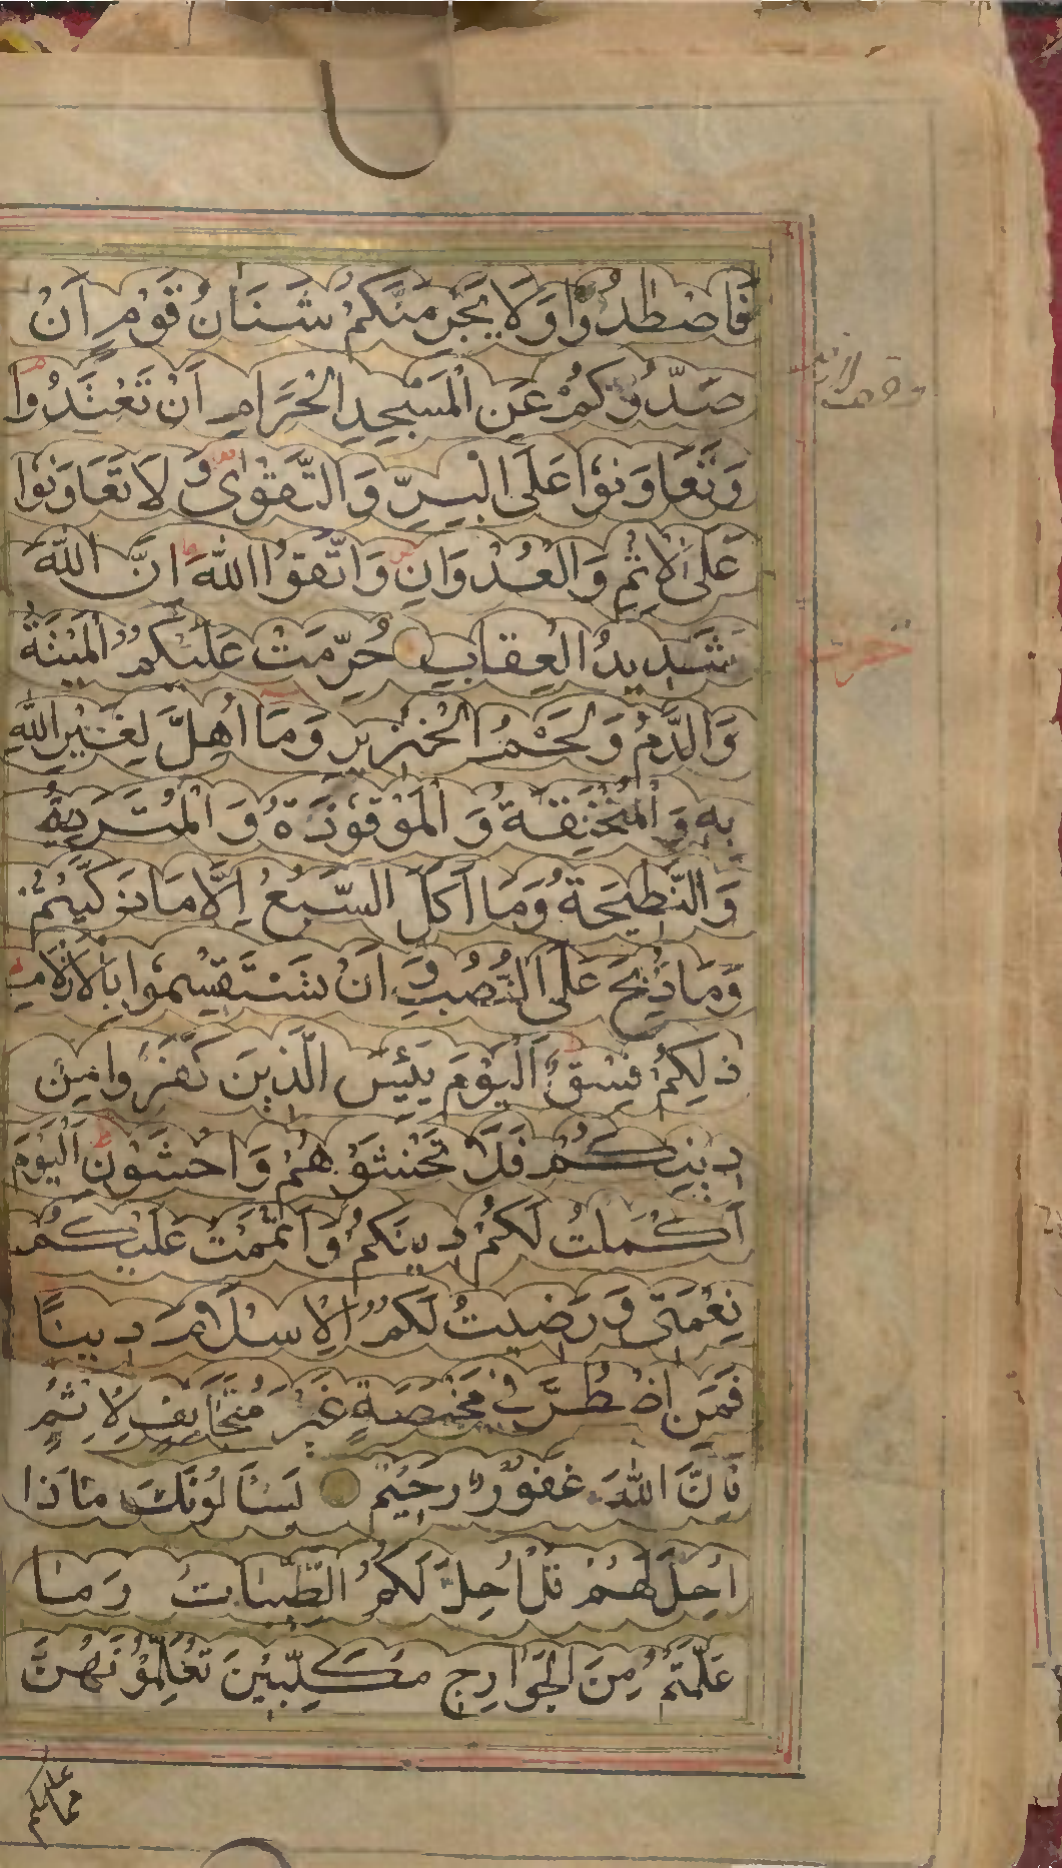 فَاصْطَدُوْا وَلَا يَجْرِمَنَّكُمْ شَنَاٰنُ قَوْمٍ اَنْ
صَدُّوْكُمْ عَنِ الْمَسْجِدِ الْحَرَامِ اَنْ تَعْتَدُوْا
وَتَعَاوَنُوْا عَلَى الْبِرِّ وَالتَّقْوٰى وَلَا تَعَاوَنُوْا
عَلَى الْاِثْمِ وَالْعُدْوَانِ وَاتَّقُوا اللّٰهَ اِنَّ اللّٰهَ
شَدِيْدُ الْعِقَابِ حُرِّمَتْ عَلَيْكُمُ الْمَيْتَةُ
وَالدَّمُ وَلَحْمُ الْخِنْزِيْرِ وَمَا اُهِلَّ لِغَيْرِ اللّٰهِ
بِهٖ وَالْمُنْخَنِقَةُ وَالْمَوْقُوْذَةُ وَالْمُتَرَدِّيَةُ
وَالنَّطِيْحَةُ وَمَا اَكَلَ السَّبُعُ اِلَّا مَا ذَكَّيْتُمْ
وَمَا ذُبِحَ عَلَى النُّصُبِ وَاَنْ تَسْتَقْسِمُوْا بِالْاَزْلَامِ
ذٰلِكُمْ فِسْقٌ اَلْيَوْمَ يَئِسَ الَّذِيْنَ كَفَرُوْا مِنْ
دِيْنِكُمْ فَلَا تَخْشَوْهُمْ وَاخْشَوْنِ اَلْيَوْمَ
اَكْمَلْتُ لَكُمْ دِيْنَكُمْ وَاَتْمَمْتُ عَلَيْكُمْ
نِعْمَتِيْ وَرَضِيْتُ لَكُمُ الْاِسْلَامَ دِيْنًا
فَمَنِ اضْطُرَّ فِيْ مَخْمَصَةٍ غَيْرَ مُتَجَانِفٍ لِاِثْمٍ
فَاِنَّ اللّٰهَ غَفُوْرٌ رَحِيْمٌ يَسْـَٔلُوْنَكَ مَاذَا
اُحِلَّ لَهُمْ قُلْ اُحِلَّ لَكُمُ الطَّيِّبَاتُ وَمَا
عَلَّمْتُمْ مِنَ الْجَوَارِحِ مُكَلِّبِيْنَ تُعَلِّمُوْنَهُنَّ
مما علمكم